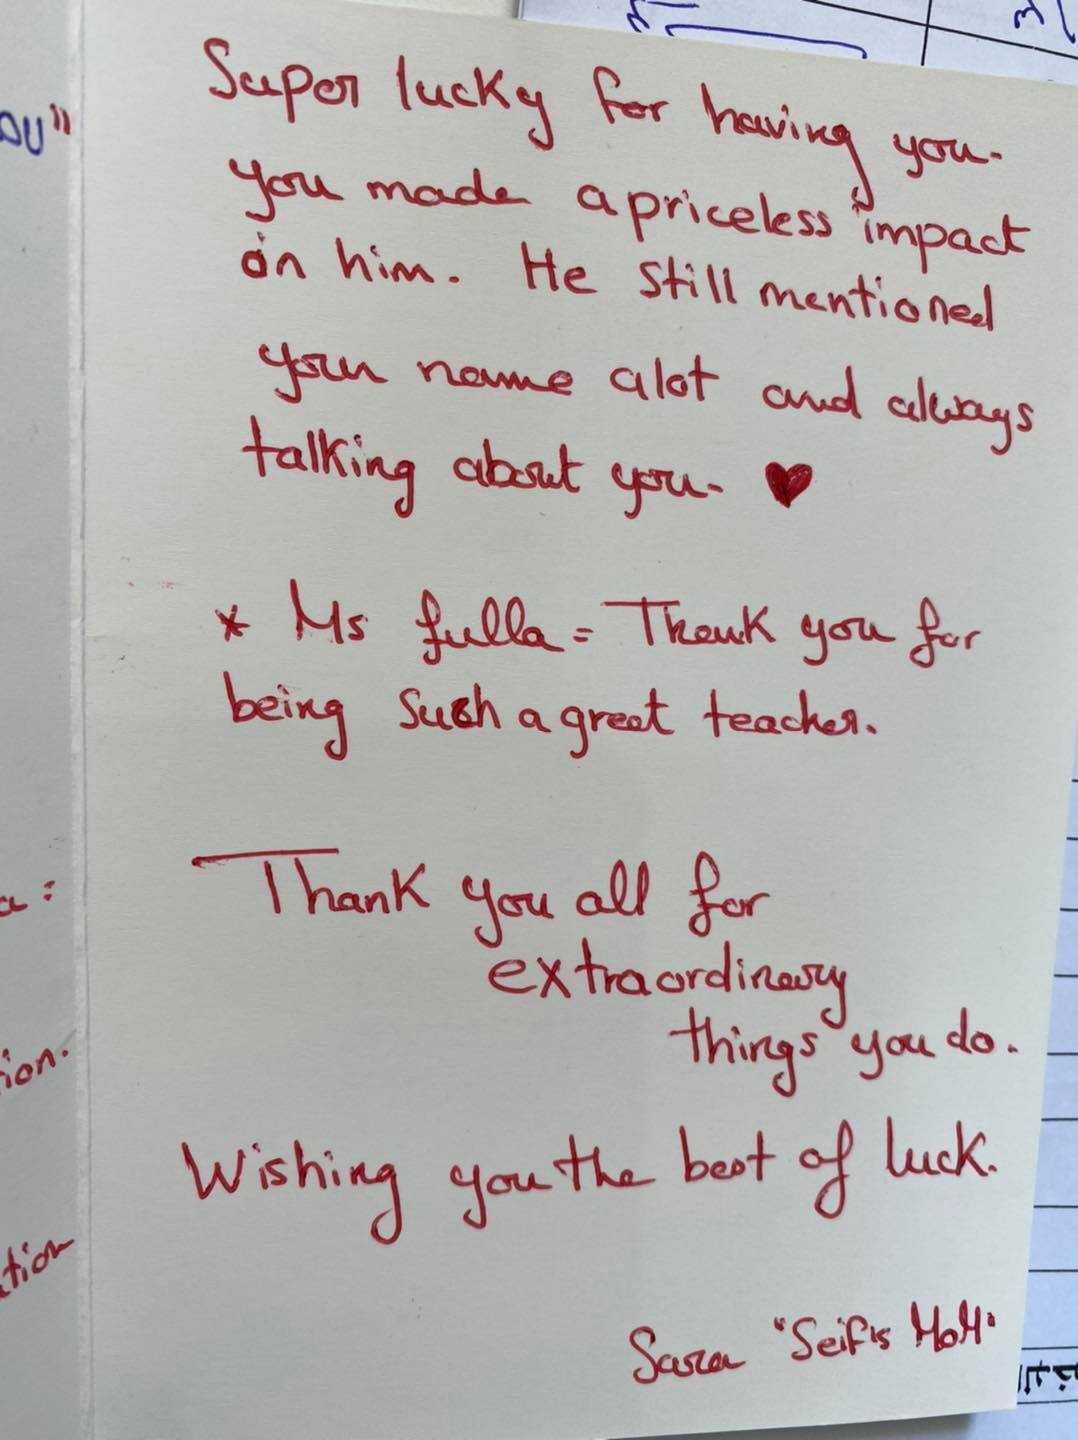 Super lucky for having you.
you made a priceless impact
on him. He still mentioned
your name alot and always
talking about you. ♥
* Ms fulla = Thank you for
being such a great teacher.
Thank you all for
extraordinary
things you do.
Wishing you the best of luck.
Sara "Seif's MoM"